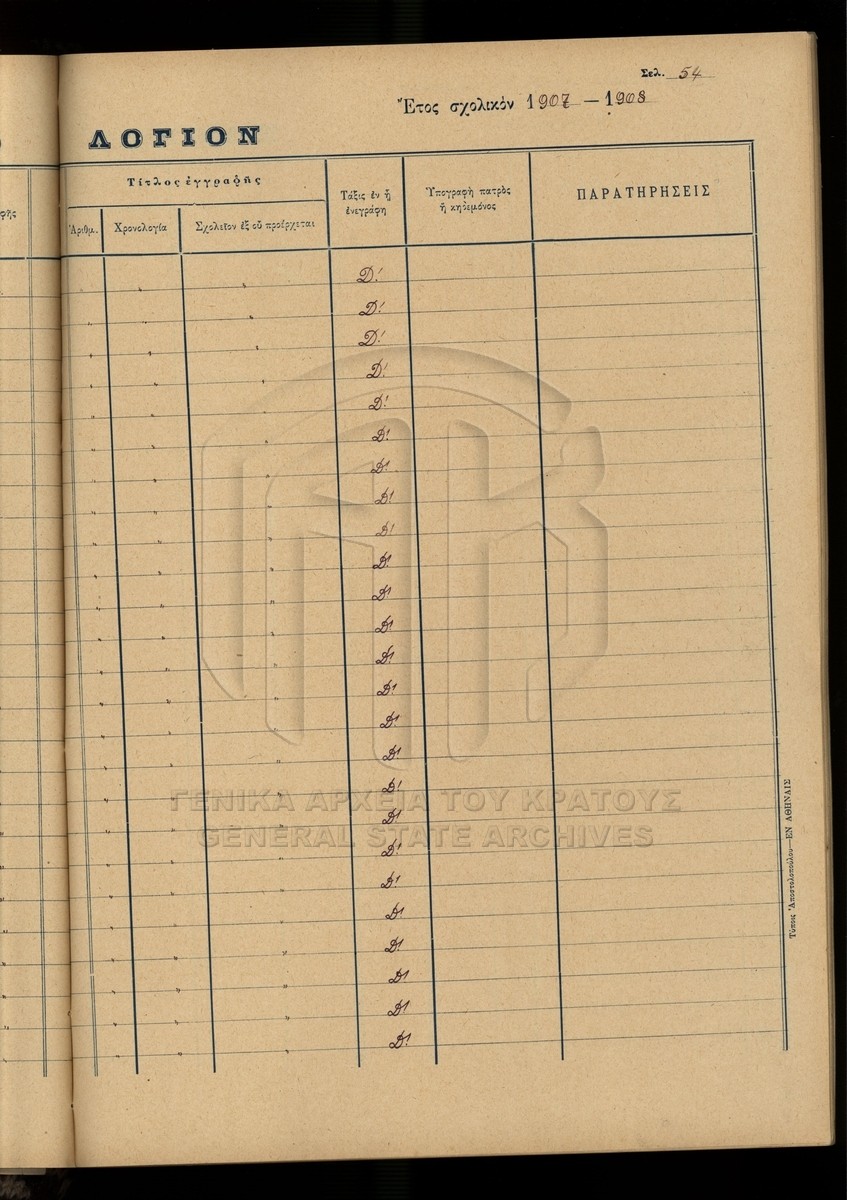 Σελ. 54
Ἔτος σχολικόν 1907 — 1908
ΛΟΓΙΟΝ
Τίτλος ἐγγραφῆς
Τάξις ἐν ᾗ
ἐνεγράφη
Ὑπογραφὴ πατρὸς
ἢ κηδεμόνος
ΠΑΡΑΤΗΡΗΣΕΙΣ
Ἀριθμ.
Χρονολογία
Σχολεῖον ἐξ οὗ προέρχεται
„ „ „ Δ!
„ „ „ Δ!
„ „ „ Δ!
„ „ „ Δ!
„ „ „ Δ!
„ „ „ Δ!
„ „ „ Δ!
„ „ „ Δ!
„ „ „ Δ!
„ „ „ Δ!
„ „ „ Δ!
„ „ „ Δ!
„ „ „ Δ!
„ „ „ Δ!
„ „ „ Δ!
„ „ „ Δ!
„ „ „ Δ!
„ „ „ Δ!
„ „ „ Δ!
„ „ „ Δ!
„ „ „ Δ!
„ „ „ Δ!
„ „ „ Δ!
„ „ „ Δ!
„ „ „ Δ!
ΓΕΝΙΚΑ ΑΡΧΕΙΑ ΤΟΥ ΚΡΑΤΟΥΣ
GENERAL STATE ARCHIVES
Τύποις Ἀποστολοπούλου—ΕΝ ΑΘΗΝΑΙΣ